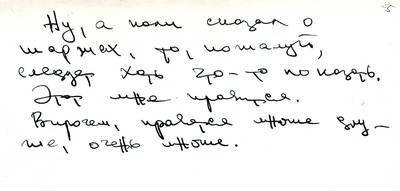 Ну, а коли сказал о
шаржах, то, пожалуй,
следует хоть что-то показать.
Этот мне нравится.
Впрочем, нравятся многие дру-
гие, очень многие.